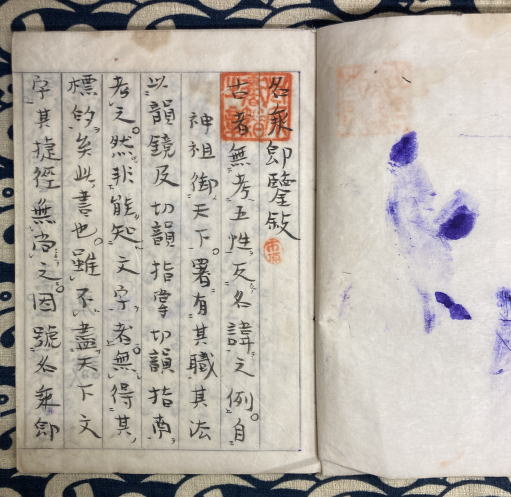 名乘即鑒敍
古者無考五性反名諱之例。自
神祖御天下。署有其職其法
以韻鏡及切韻指掌切韻指南
考之。然非能知文字者。無得其
標的矣。此書也。雖不盡天下文
字其捷徑無尚之。因號名乘即